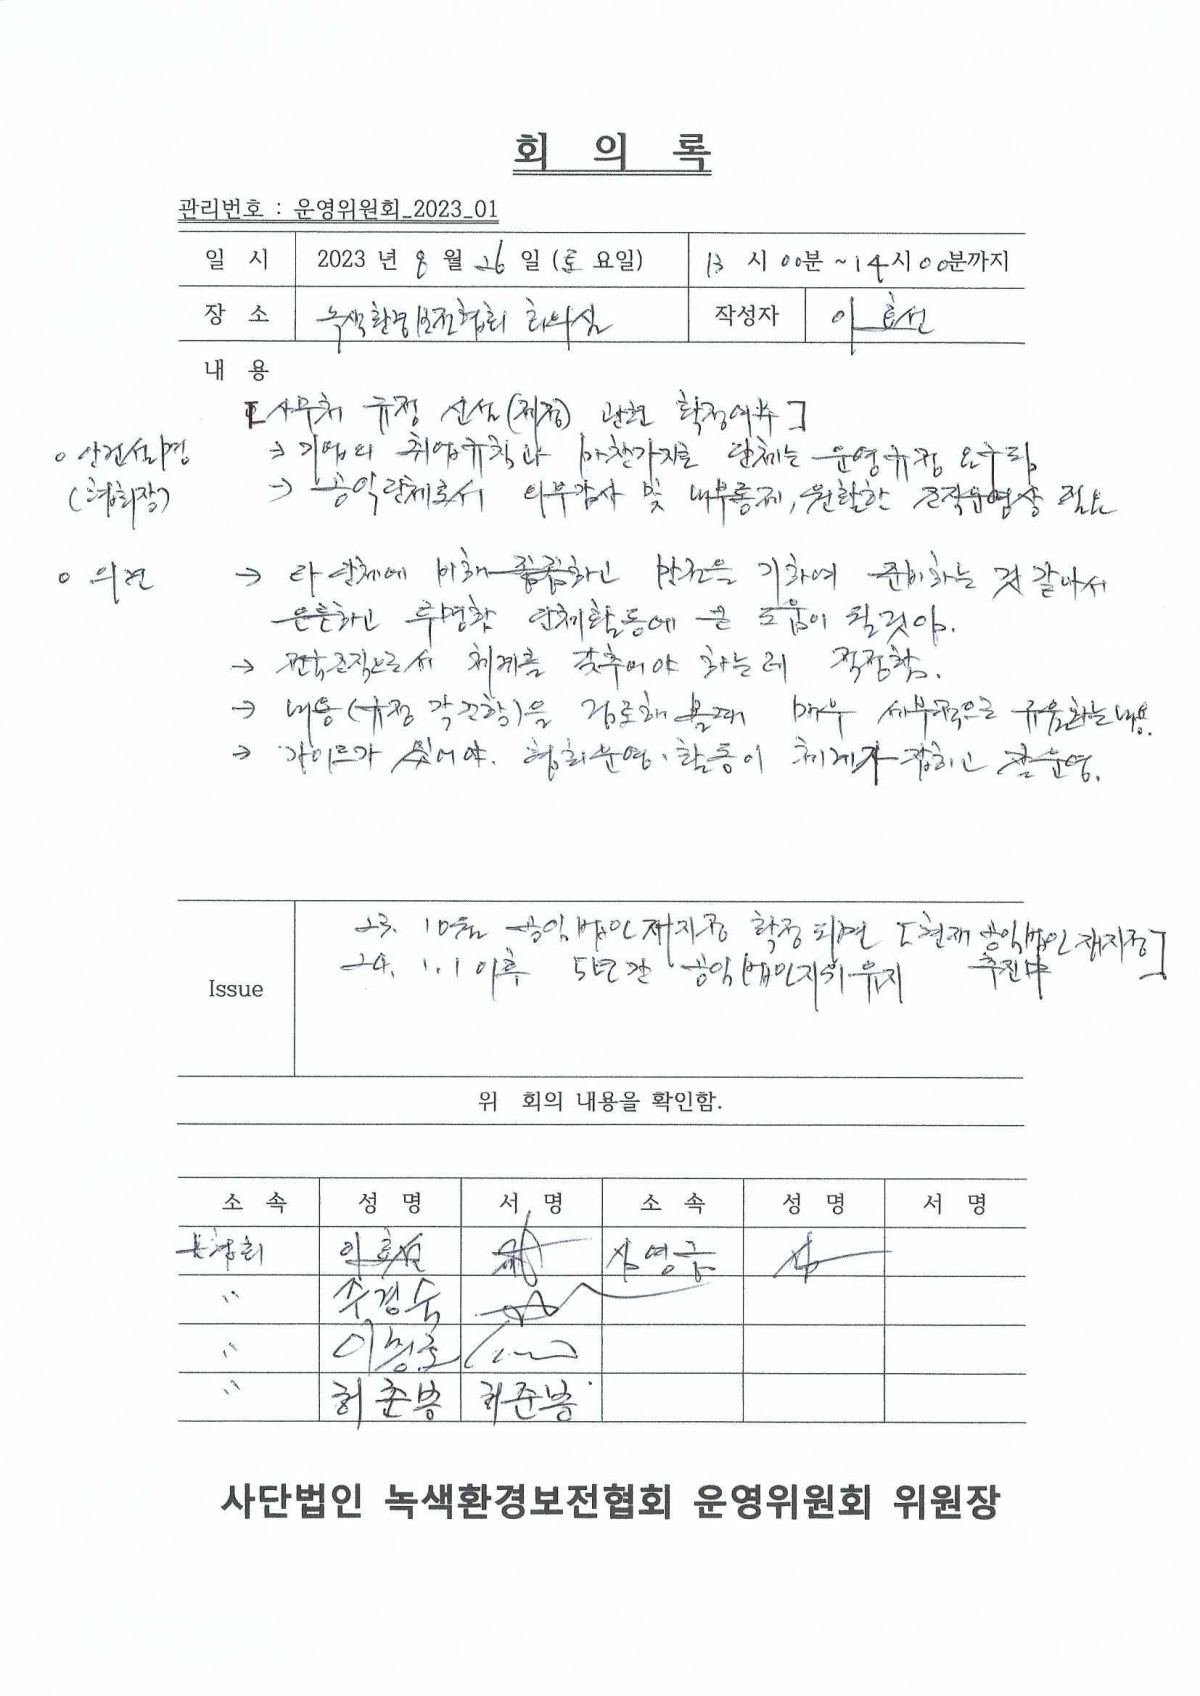 회 의 록
관리번호 : 운영위원회_2023_01
일 시 2023 년 8 월 26 일 (토 요일) 13 시 00분 ~ 14시 00분까지
장 소 녹색환경보전협회 회의실 작성자 이효선
내 용
[사무처 규정 신설(제정) 관련 확정여부]
○ 안건설명 → 기업의 취업규칙과 마찬가지로 단체는 운영규정 요구됨.
(협회장) → 공익단체로서 외부감사 및 내부통제, 원활한 조직운영상 필요
○ 의견 → 타 단체에 비해 꼼꼼하고 만전을 기하여 준비하는 것 같아서
튼튼하고 투명한 단체활동에 큰 도움이 될것임.
→ 조직으로서 체계를 갖추어야 하는데 적정함.
→ 내용(규정 각조항)을 검토해 볼때 매우 세부적으로 내용.
→ 가이드가 있어야. 협회운영·활동이 체계가 잡히고 잘운영.
Issue
23. 10월 공익법인재지정 확정 되면 [현재 공익법인재지정
24. 1.1 이후 5년간 공익법인지위 유지 추진中]
위 회의 내용을 확인함.
소 속 성 명 서 명 소 속 성 명 서 명
녹협회 이효선 심영금
〃
〃
〃 허준봉 허준봉
사단법인 녹색환경보전협회 운영위원회 위원장